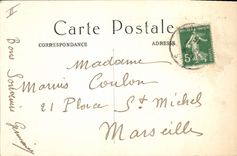 Carte Postale
CORRESPONDANCE
ADRESSE
Madame
Marius Coulon
21 Place St Michel
Marseille
Bons Souvenirs
5